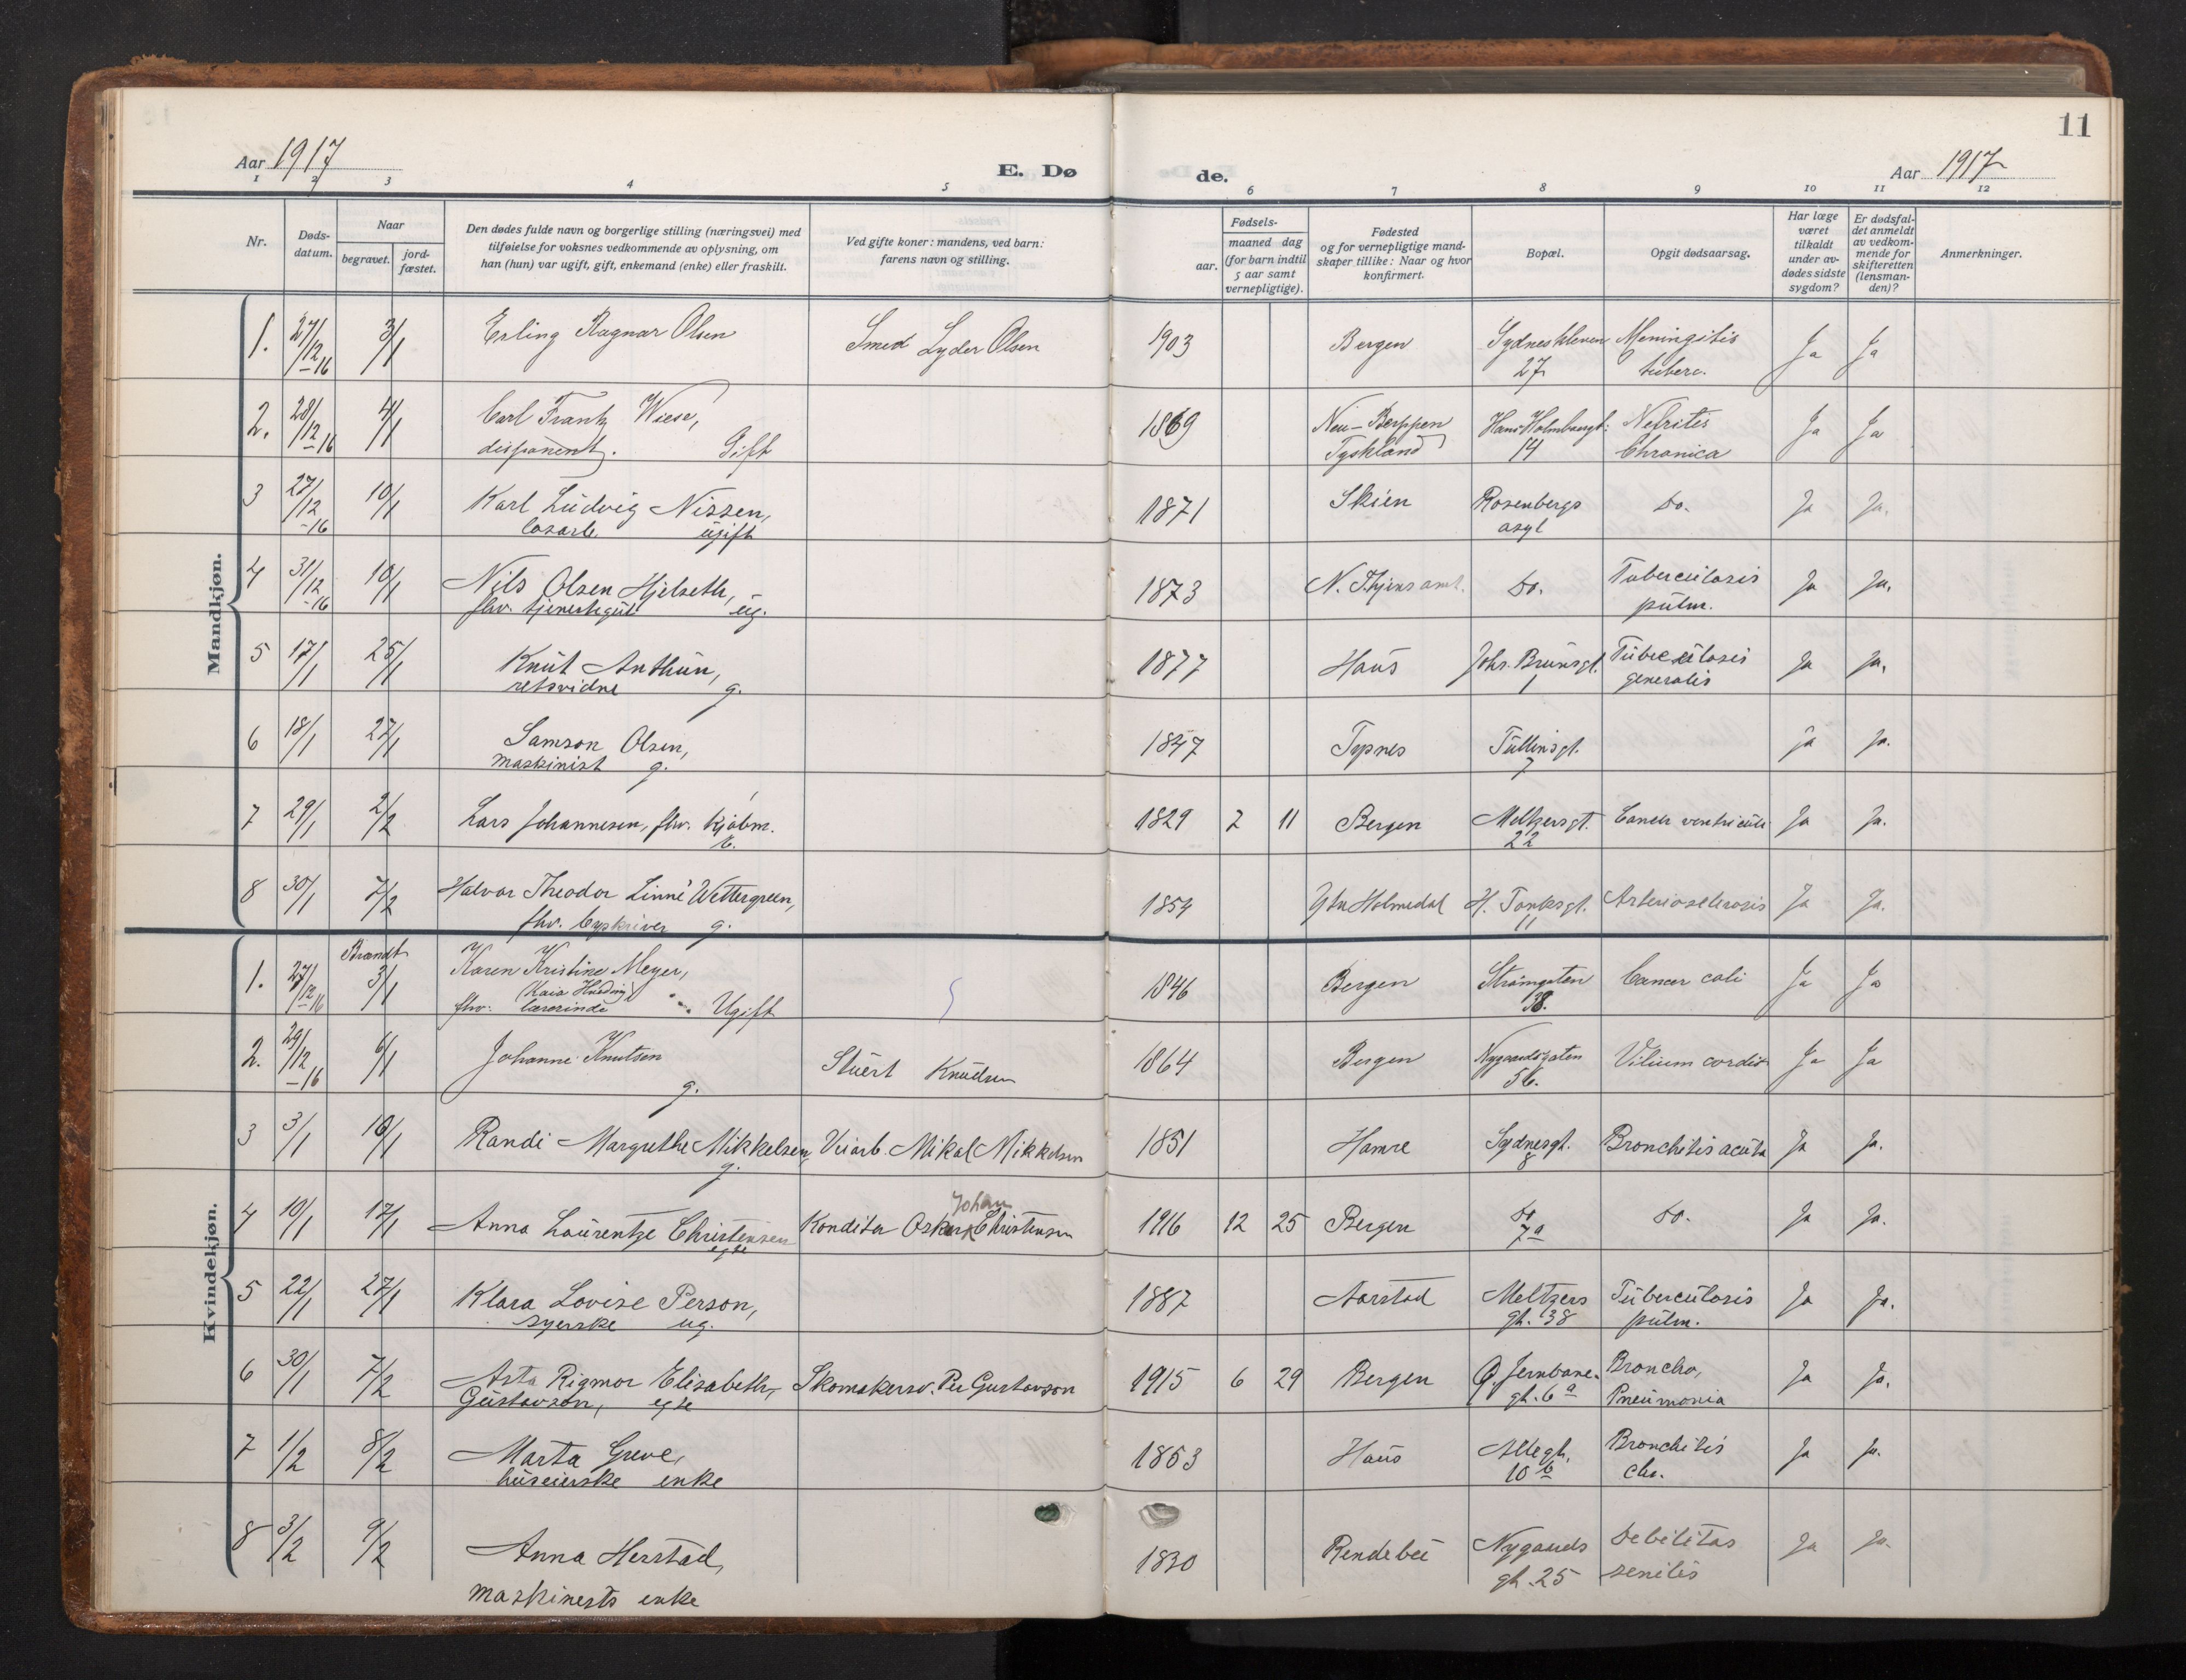 11
Aar 1917
E. Dø
de.
Aar 1917
1 2 3 4 5 6 7 8 9 10 11 12
Nr.
Døds-
datum.
Naar
begravet.
jord-
fæstet.
Den dødes fulde navn og borgerlige stilling (næringsvei) med
tilføielse for voksnes vedkommende av oplysning, om
han (hun) var ugift, gift, enkemand (enke) eller fraskilt.
Ved gifte koner: mandens, ved barn:
farens navn og stilling.
aar.
Fødsels-
maaned dag
(for barn indtil
5 aar samt
vernepligtige).
Fødested
og for vernepligtige mand-
skaper tillike: Naar og hvor
konfirmert.
Bopæl.
Opgit dødsaarsag.
Har læge
været
tilkaldt
under av-
dødes sidste
sygdom?
Er dødsfal-
det anmeldt
av vedkom-
mende for
skifteretten
(lensman-
den)?
Anmerkninger.
Mandkjøn.
1. 27/12-16 3/1 Erling Ragnar Olsen Smed Lyder Olsen 1903 Bergen Sydneskleven Meningitis Ja Ja
27 tuberc.
2. 28/12-16 4/1 Carl Frantz Wiese, 1869 Neu-Berppen Hans Holmboegt: Nefritis Ja Ja
disponent. Gift Tyskland 14 Chronica
3 27/12-16 10/1 Karl Ludvig Nissen, 1871 Skien Rosenbergs Do. Ja Ja.
løsarb. ugift asyl
4 31/12-16 10/1 Nils Olsen Hjelseth, 1873 N. Thjems amt. Do. Tuberculosis Ja Ja.
fhv. tjenestegut ug. pulm.
5 17/1 25/1 Knut Anthun, 1877 Haus Johs. Brunsgt. Tuberculosis Ja Ja.
retsvidne g. 1 generalis
6 18/1 27/1 Samson Olsen, 1847 Tysnes Tullinsgt. ja Ja.
maskinist g. 7
7 29/1 2/2 Lars Johannesen, fhv. kjøbm. 1829 2 11 Bergen Meltzersgt. Cancer ventriculi Ja Ja.
e. 22
8 30/1 7/2 Halvor Theodor Linné Wettergreen, 1854 Ytre Holmedal H. Tanksgt. Arteriosclerosis Ja Ja.
fhv. byskriver g. 11
Kvindekjøn.
Brandt
1. 27/12-16 3/1 Karen Kristine Meyer, 1846 Bergen Strømgaten Cancer coli Ja Ja
fhv. lærerinde Ugift 38.
2. 29/12-16 6/1 Johanne Knutsen Stuert Knudsen 1864 Bergen Nygaardsgaten Vitium cordis Ja Ja
g. 56.
3 3/1 10/1 Randi Margrethe Mikkelsen, Veiarb. Mikal Mikkelsen 1851 Hamre Sydnesgt. Bronchitis acuta Ja Ja.
g. 8
Johan
4 10/1 17/1 Anna Laurentze Christensen Konditor Oskar Christensen 1916 12 25 Bergen do do. Ja Ja.
egte 7a
5 22/1 27/1 Klara Lovise Person, 1887 Aarstad Meltzers Tuberculosis Ja Ja.
syerske ug. gt. 38 pulm.
6 30/1 7/2 Asta Rigmor Elisabeth, Skomakersv. Per Gustavson 1915 6 29 Bergen Ø. Jernbane- Broncho, Ja Ja.
Gustavson, egte gt. 6a Pneumonia
7 1/2 8/2 Marta Greve, 1853 Haus Allegt. Bronchitis Ja Ja.
huseierske enke 10b chr.
8 3/2 9/2 Anna Herstad, 1830 Rendebu Nygaards Debilitas Ja Ja.
maskinists enke gt. 25 senilis